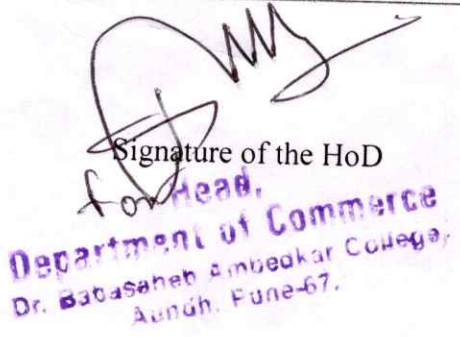 Signature of the HoD
for Head,
Department of Commerce
Dr. Babasaheb Ambedkar College,
Aundh, Pune-67.